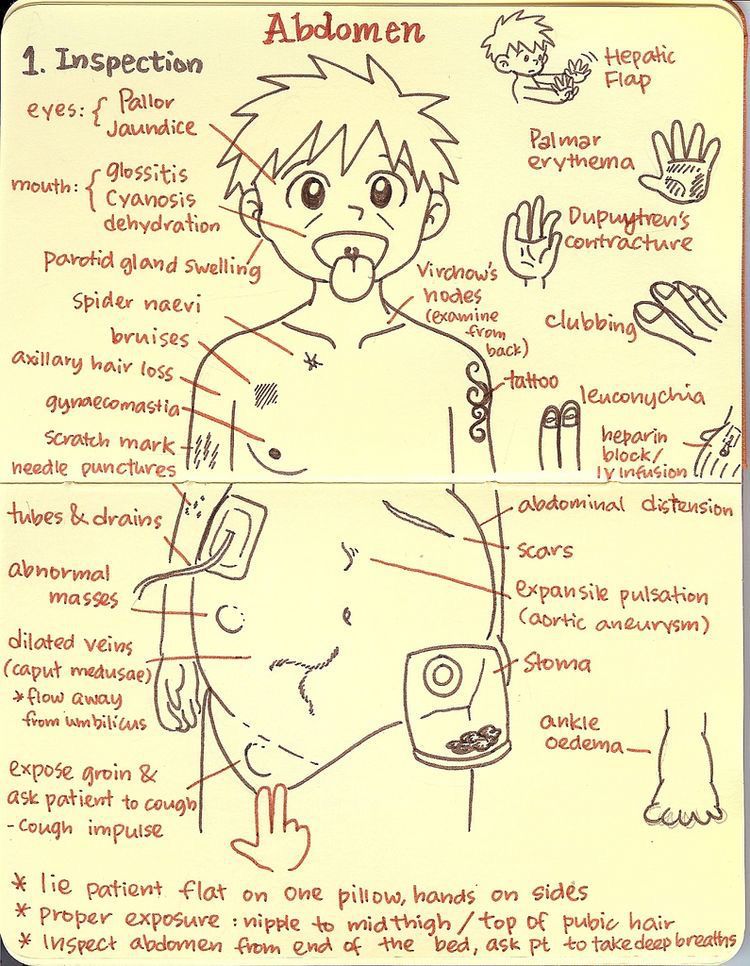 Abdomen
1. Inspection
eyes: { Pallor
Jaundice
mouth: { glossitis
Cyanosis
dehydration
parotid gland swelling
spider naevi
bruises
axillary hair loss
gynaecomastia
scratch mark
needle punctures
tubes & drains
abnormal
masses
dilated veins
(caput medusae)
* flow away
from umbilicus
expose groin &
ask patient to cough
- cough impulse
Hepatic
Flap
Palmar
erythema
Dupuytren's
contracture
Virchow's
nodes
(examine
from
back)
clubbing
tattoo
leuconychia
heparin
block/
IV infusion
abdominal distension
scars
expansile pulsation
(aortic aneurysm)
Stoma
ankle
oedema
* lie patient flat on one pillow, hands on sides
* Proper exposure : nipple to midthigh / top of pubic hair
* Inspect abdomen from end of the bed, ask pt to take deep breaths